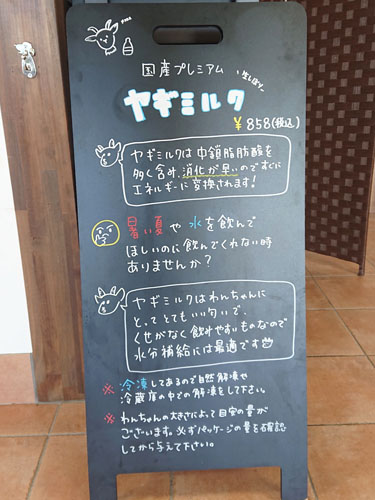 国産プレミアム
生しぼり
ヤギミルク
¥858(税込)
ヤギミルクは中鎖脂肪酸を
多く含み、消化が早いのですぐに
エネルギーに変換されます！
暑い夏や水を飲んで
ほしいのに飲んでくれない時
ありませんか？
ヤギミルクはわんちゃんに
とってとてもいい匂いで、
くせがなく飲みやすいものなので
水分補給には最適です
※冷凍してあるので自然解凍や
冷蔵庫の中での解凍をして下さい。
※わんちゃんの大きさによって目安の量が
ございます。必ずパッケージの量を確認
してから与えて下さい。